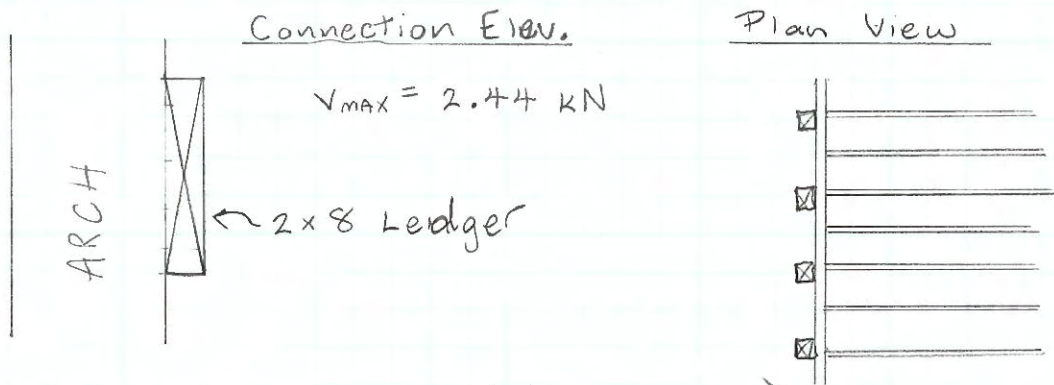 Connection Elev.
Plan View
VMAX = 2.44 KN
ARCH
2x8 Ledger